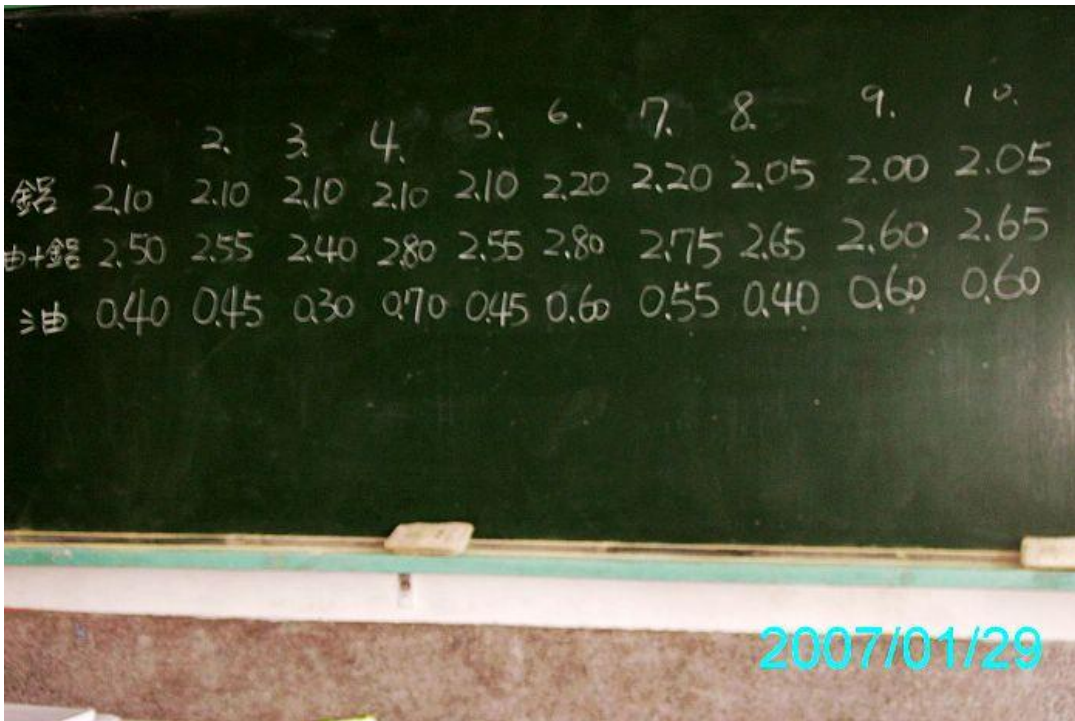 1. 2. 3. 4. 5. 6. 7. 8. 9. 10.
鋁 2.10 2.10 2.10 2.10 2.10 2.20 2.20 2.05 2.00 2.05
油+鋁 2.50 2.55 2.40 2.80 2.55 2.80 2.75 2.65 2.60 2.65
油 0.40 0.45 0.30 0.70 0.45 0.60 0.55 0.40 0.60 0.60
2007/01/29